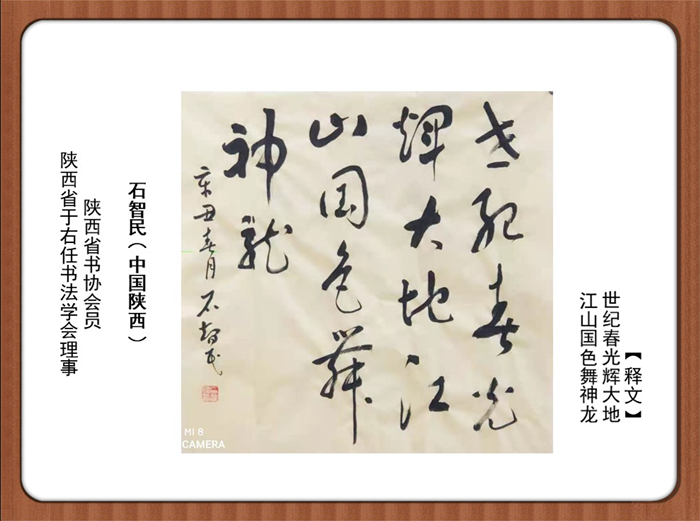 【释文】
世纪春光辉大地
江山国色舞神龙
世纪春光
辉大地江
山国色舞
神龙
辛丑春月 石智民
MI 8
CAMERA
石智民（中国陕西）
陕西省书协会员
陕西省于右任书法学会理事